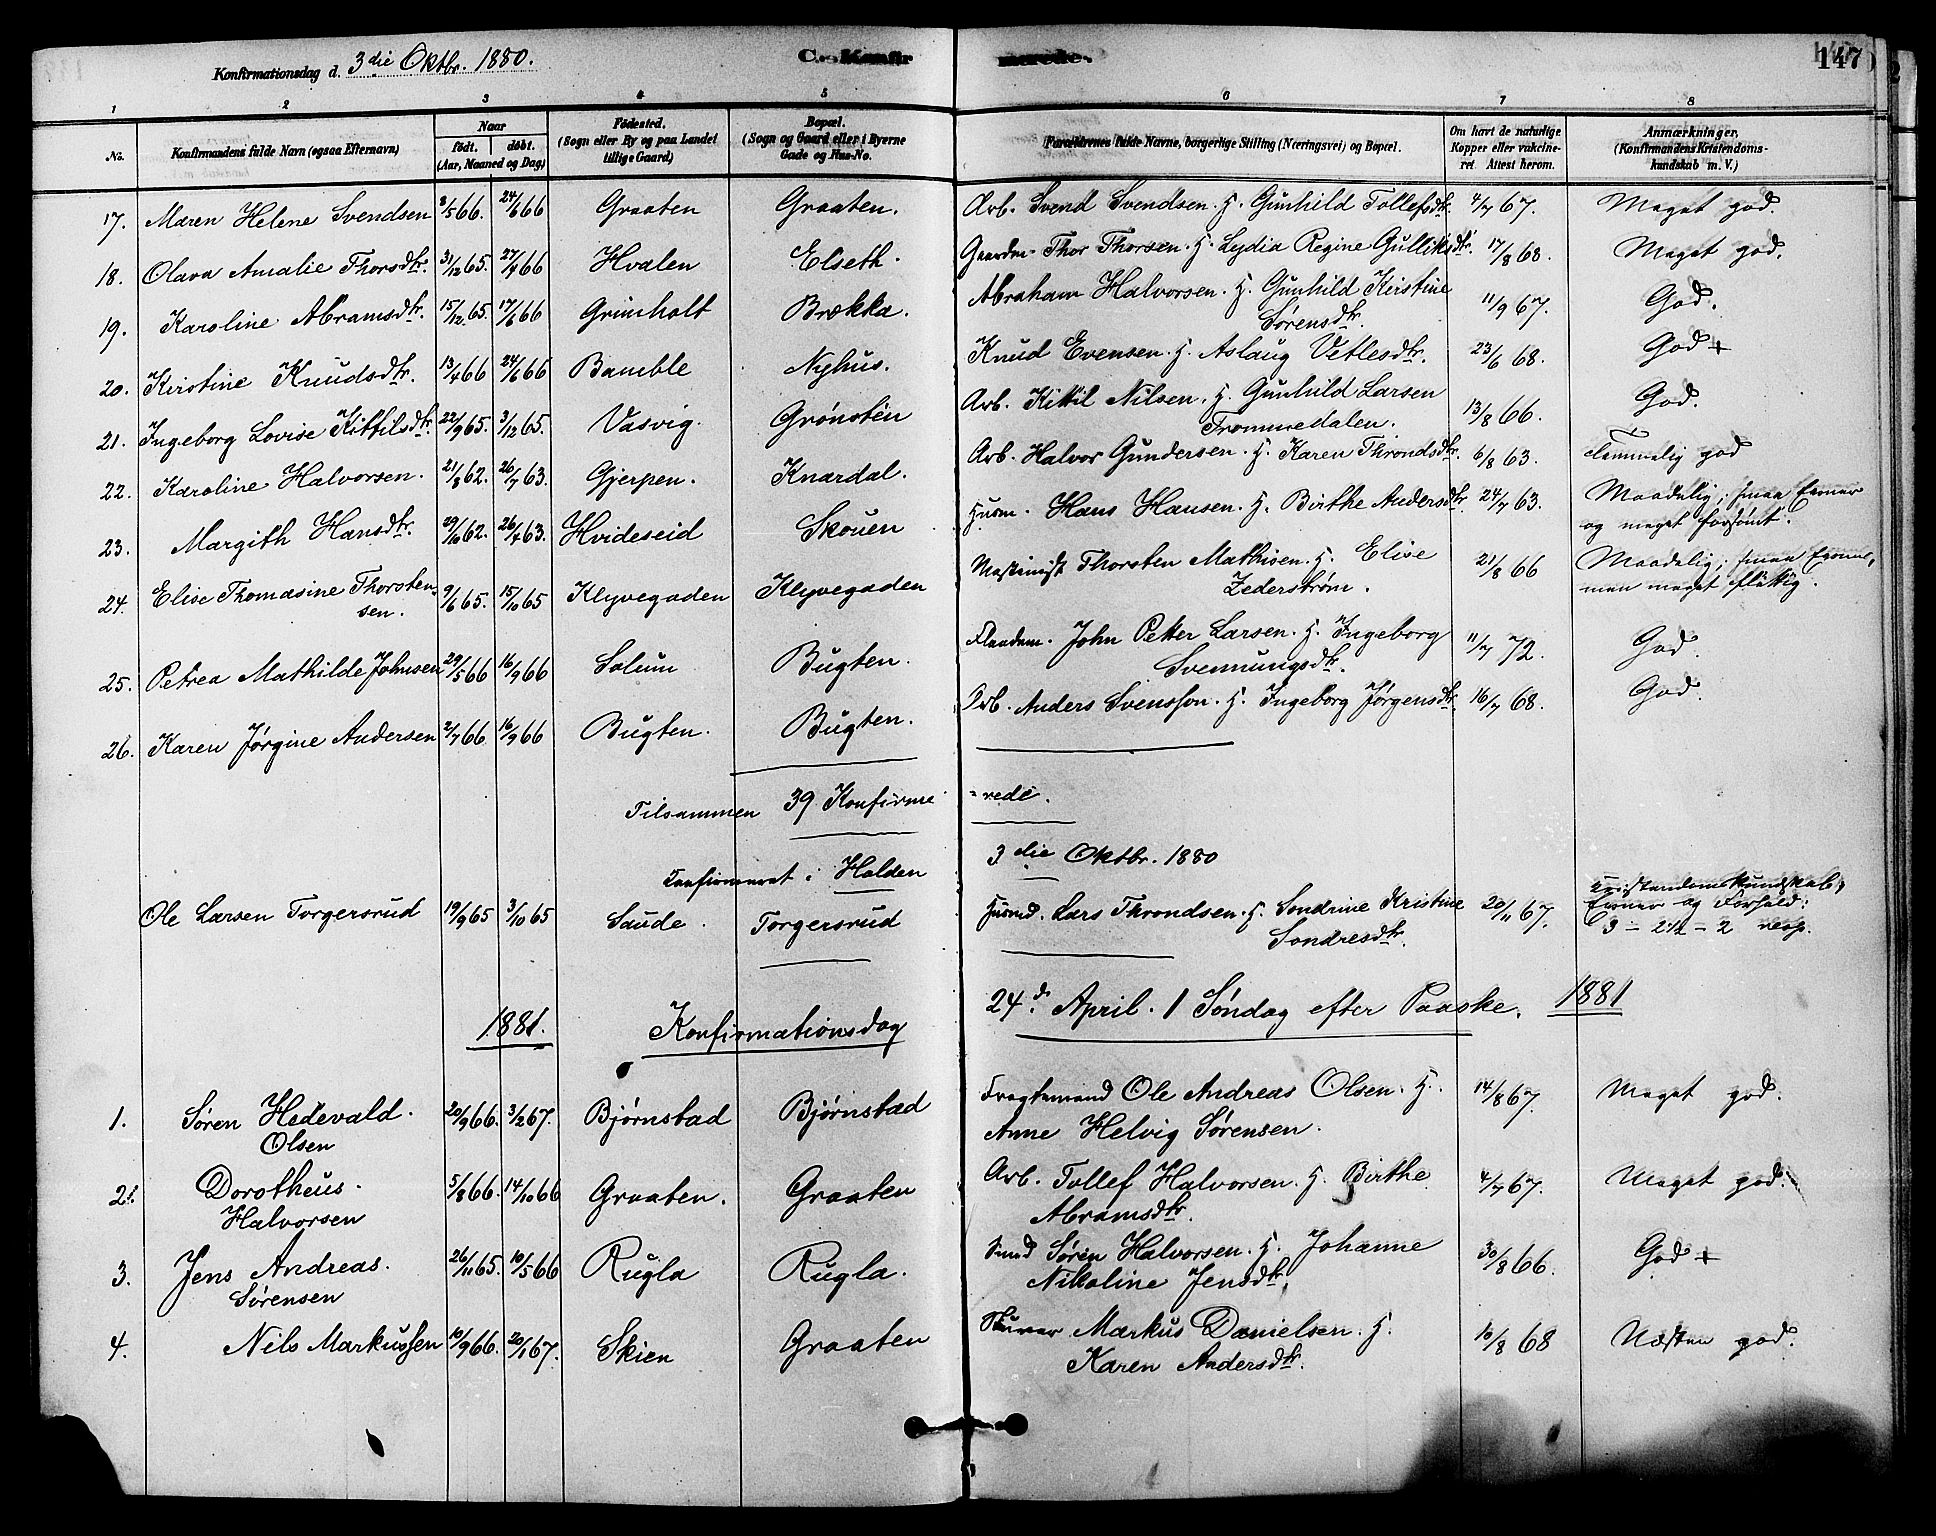 Konfirmationsdag d. 3die Oktbr. 1880. C. Konfirmerede. 147
1 2 3 4 5 6 7 8
No. Konfirmandens fulde Navn (ogsaa Efternavn) Naar født. døbt. (Aar, Maaned og Dag) Fødested. (Sogn eller By og paa Landet tillige Gaard) Bopæl. (Sogn og Gaard eller i Byerne Gade og Hus-No. Forældrenes fulde Navne, borgerlige Stilling (Næringsvei) og Bopæl. Om havt de naturlige Kopper eller vakcineret. Attest herom. Anmærkninger, (Konfirmandens Kristendomskundskab m. V.)
17. Maren Helene Svendsen 8/5 66. 24/6 66 Graaten Graaten. Arb. Svend Svendsen. H. Gunhild Tollefsdtr. 4/7 67. Meget god.
18. Olava Amalie Thorsdtr. 31/12 65. 27/4 66 Hvalen Elseth. Gaardm. Thor Thorsen. H. Lydia Regine Gulliksdtr. 17/8 68. Meget god.
19. Karoline Abramsdtr. 15/12 65. 17/6 66 Grimholt Brækka. Abraham Halvorsen. H. Gunhild Kirstine Sørensdtr. 11/9 67. God.
20. Kirstine Knudsdtr. 13/4 66 24/6 66 Bamble Nyhus. Knud Evensen. H. Aslaug Vetlesdtr. 23/6 68. God +
21. Ingeborg Lovise Kittilsdtr. 22/9 65. 3/12 65. Vasvig. Grønstén Arb. Kittil Nilsen. H. Gunhild Larsen Trommedalen. 13/8 66. God.
22. Karoline Halvorsen. 21/8 62. 26/7 63. Gjerpen. Knardal. Arb. Halvor Gundersen. H. Karen Throndsdtr. 6/8 63. Temmelig god
23. Margith Hansdtr. 29/10 62. 26/4 63. Hvideseid Skouen Husm. Hans Hansen. H. Birthe Andersdtr. 24/7 63. Maadelig; smaa Evner og meget forsømt.
24. Elise Thomasine Thorstensen. 9/6 65. 15/10 65 Klyvegaden Klyvegaden Maskinist Thorsten Mathisen. H. Elise Zederstrøm. 21/8 66 Maadelig; smaa Evner, men meget flittig.
25. Petrea Mathilde Johnsen 29/5 66 16/9 66 Solum Bugten. John Petter Larsen. H. Ingeborg Svennungsdtr. 11/7 72. God.
26. Karen Jørgine Andersen 2/7 66 16/9 66 Bugten. Bugten. Arb. Anders Svensson. H. Ingeborg Jørgensdtr. 16/7 68. God.
Tilsammen 39 Konfirme=rede.
Konfirmeret i Holden 3die Oktbr. 1880
Ole Larsen Torgersrud 19/9 65 3/10 65 Saude. Torgersrud Husmd. Lars Throndsen. H. Sondrine Kristine Sondresdtr. 20/11 67. Kristendomskundskab, Evner og Forhold: 3 - 2 1/2 - 2 resp.
1881. Konfirmationsdag 24d. April. 1 Søndag efter Paaske. 1881
1. Søren Hedevald Olsen 20/9 66. 3/2 67. Bjørnstad Bjørnstad Fragtemand Ole Andreas Olsen. H. Anne Helvig Sørensen. 14/8 67. Meget god.
2. Dorotheus Halvorsen 5/8 66. 14/10 66 Graaten. Graaten Arb. Tollef Halvorsen. H. Birthe Abramsdtr. 4/7 67. Meget god.
3. Jens Andreas Sørensen 26/11 65. 10/5 66 Rugla Rugla. Smed Søren Halvorsen. H. Johanne Nikoline Jensdtr. 30/8 66. God +
4. Nils Markussen 10/9 66. 20/1 67. Skien Graaten Markus Danielsen. H. Karen Andersdtr. 10/8 68 Næsten god.